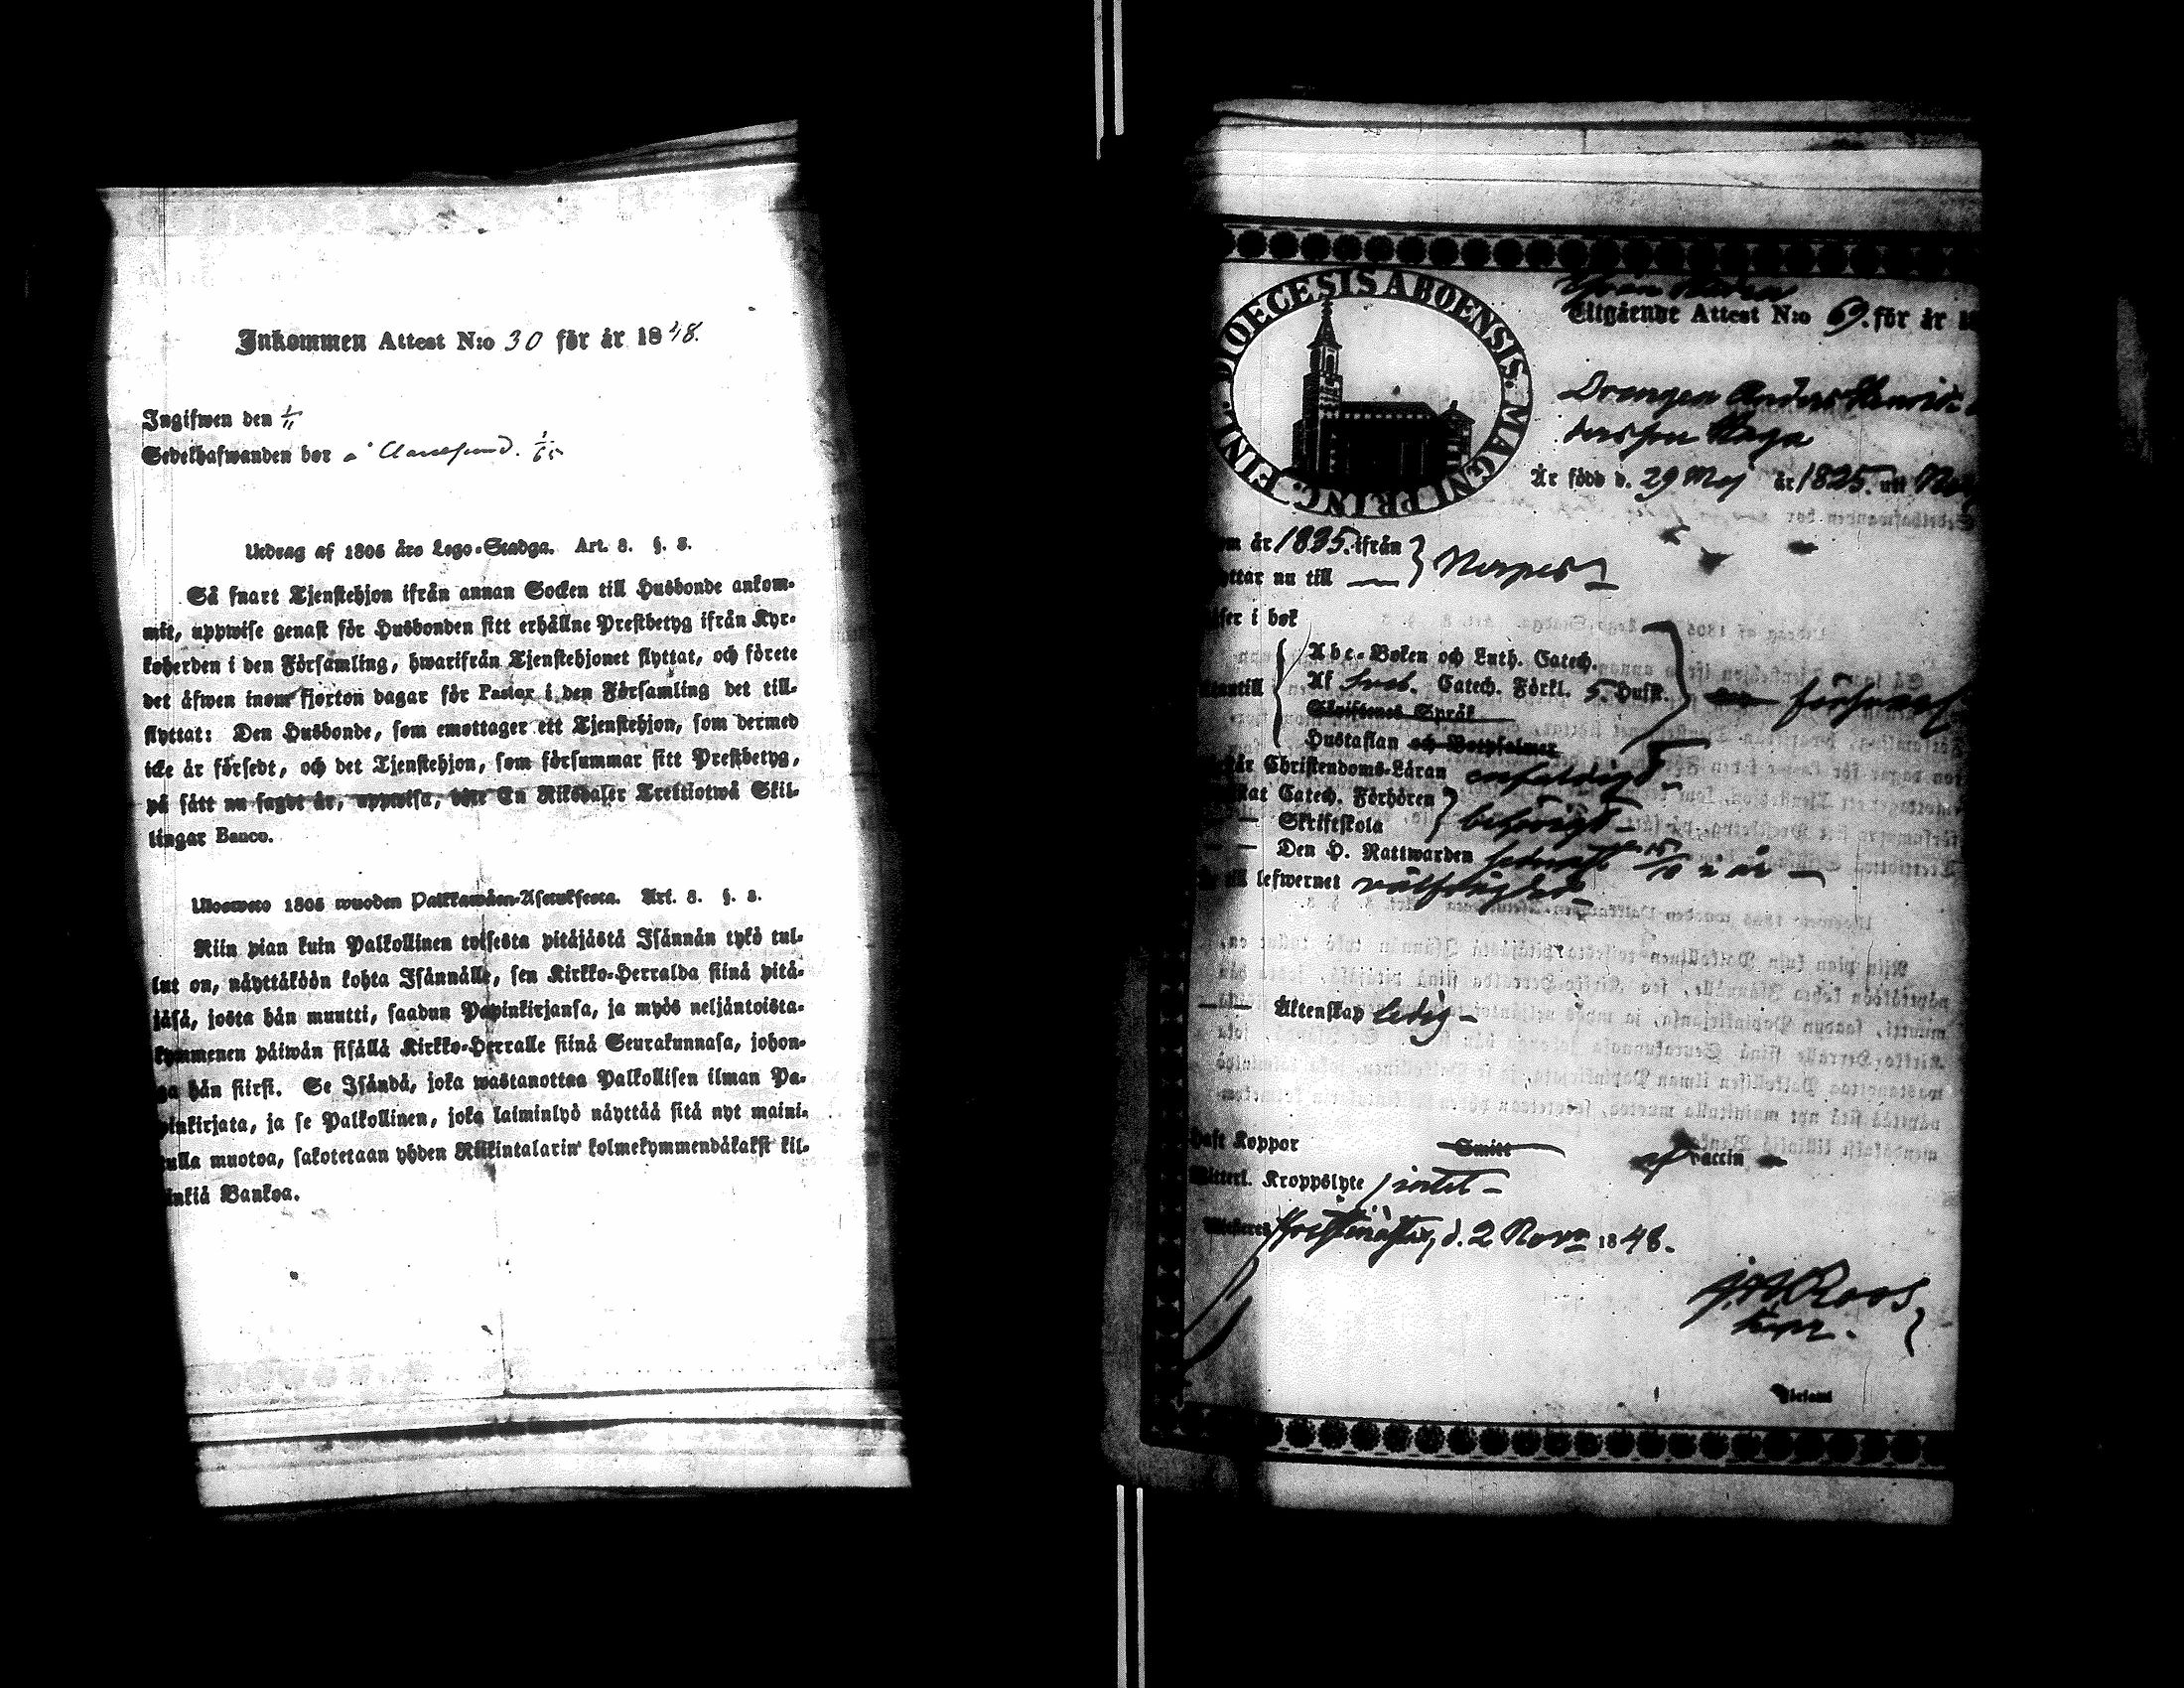 Inkommen Attest N:o 30 för år 1848.
Ingifwen den 1/11
Sedelhafwanden bor å
Utdrag af 1805 års Lego-Stadga. Art. 8. §. 8.
Så snart Tjenstehjon ifrån annan Socken till Husbonde ankom-
mit, uppwise genast för Husbonden sitt erhållne Prestbetyg ifrån Kyr-
koherden i den Församling, hwarifrån Tjenstehjonet flyttat, och förete
det äfwen inom fjorton dagar för Pastor i den Församling det till-
flyttat: Den Husbonde, som emottager ett Tjenstehjon, som dermed
icke är försedt, och det Tjenstehjon, som försummar sitt Prestbetyg,
på sätt nu sagdt är, uppwisa, böte En Riksdaler Trettiotwå Skil-
lingar Banco.
Uloswето 1805 wuoden Palkkawäen-Asetuksesta. Art. 8. §. 8.
Niin pian kuin Palkollinen toisesta pitäjästä Isännän tykö tul-
lut on, näyttäköön kohta Isännälle, sen Kirkko-Herralda siinä pitä-
jäsä, josta hän muutti, saadun Papinkirjansa, ja myös neljäntoista-
kymmenen päiwän sisällä Kirkko-Herralle siinä Seurakunnasa, johon-
ga hän siirsi. Se Isändä, joka wastanottaa Palkollisen ilman Pa-
pinkirjata, ja se Palkollinen, joka laiminlyö näyttää sitä nyt maini-
tulla muotoa, sakotetaan yhden Riikintalarin kolmekymmendäkaksi kil-
linkiä Bankoa.
DIOECESIS ABOENSIS. MAGNI PRINC. FINL.
Utgående Attest N:o 69. för år 18
Drengen Anders Henric
dersson Kaga
Är född d. 29 Maj år 1825. uti
om år 1835. ifrån
yttar nu till — } Nerpes
ser i bok
Abc-Boken och Luth. Catech.
antill Af Sveb. Catech. Förkl. 5. Husst.
Skriftenes Språk
Hustaflan och Botpsalmer
år Christendoms-Läran enfaldigt
tat Catech. Förhören
— Skriftskola } behörigt —
— — Den H. Nattwarden senast i år —
till lefwernet välfrägdad —
— — Äktenskap ledig —
Haft Koppor Smitt af Vaccin
Witterl. Kroppslyte intet —
d. 2 Nov 1848.
Roos